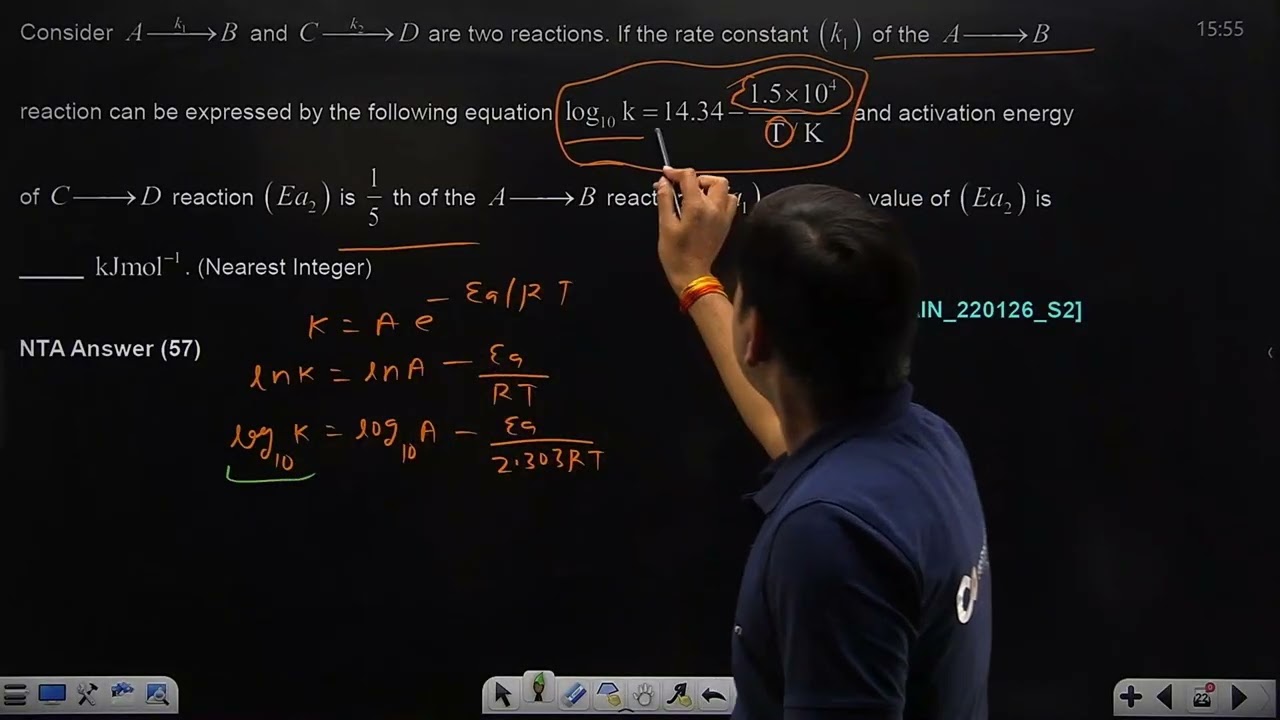 Consider A —k₁→ B and C —k₂→ D are two reactions. If the rate constant (k₁) of the A ⟶ B
15:55
reaction can be expressed by the following equation log₁₀ k = 14.34 − 1.5×10⁴ / T / K and activation energy
of C ⟶ D reaction (Ea₂) is 1/5 th of the A ⟶ B value of (Ea₂) is
____ kJmol⁻¹. (Nearest Integer)
IN_220126_S2]
NTA Answer (57)
K = A e^(− Ea/RT)
lnK = lnA − Ea/RT
log₁₀ K = log₁₀ A − Ea/2.303RT
22